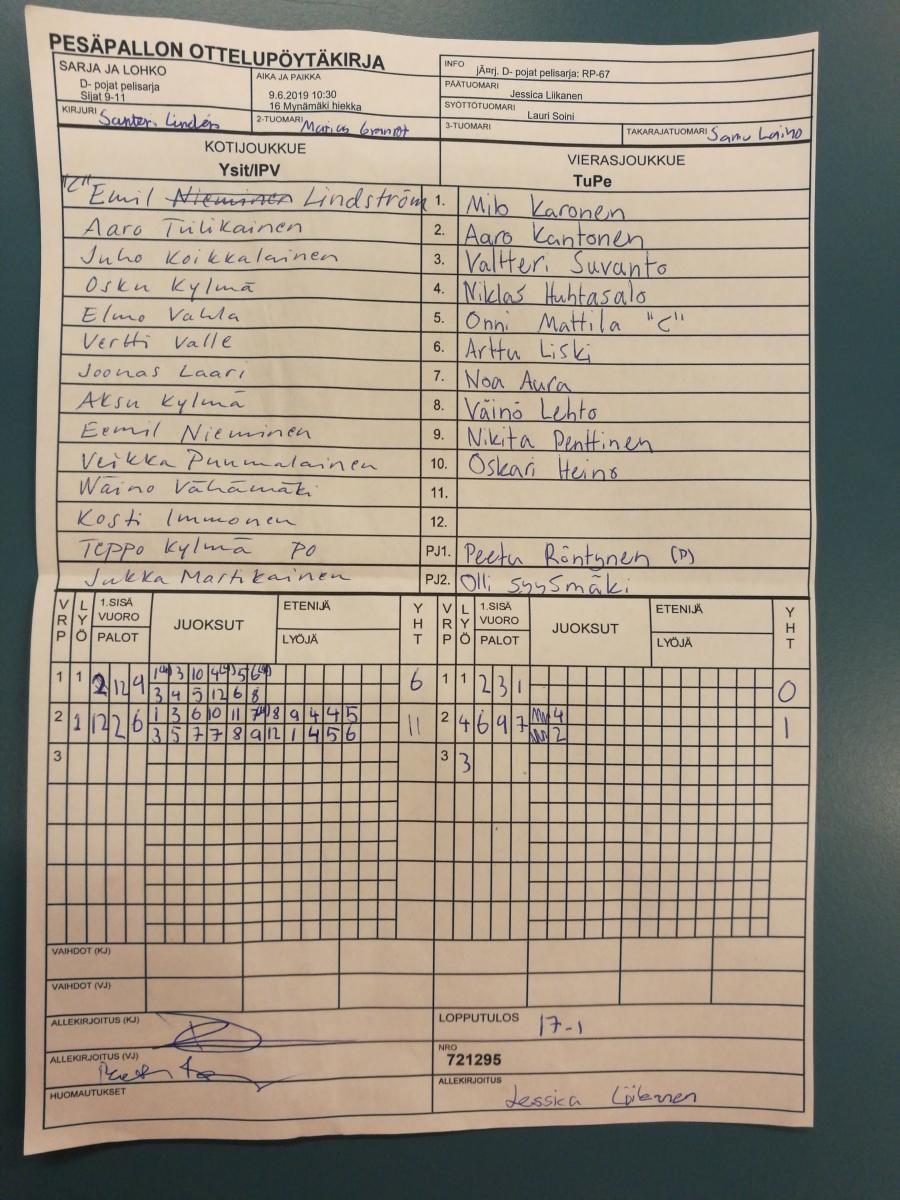 PESÄPALLON OTTELUPÖYTÄKIRJA
SARJA JA LOHKO
D- pojat pelisarja
Sijat 9-11
AIKA JA PAIKKA
9.6.2019 10:30
16 Mynämäki hiekka
INFO jÃ¤rj. D- pojat pelisarja: RP-67
PÄÄTUOMARI Jessica Liikanen
SYÖTTÖTUOMARI Lauri Soini
KIRJURI Santeri Lindén
2-TUOMARI Marius
3-TUOMARI
TAKARAJATUOMARI Samu Laino
KOTIJOUKKUE
Ysit/IPV
VIERASJOUKKUE
TuPe
"C" Emil Nieminen Lindström 1. Milo Karonen
Aaro Tiilikainen 2. Aaro Kantonen
Juho Koikkalainen 3. Valtteri Suvanto
Osku Kylmä 4. Niklas Huhtasalo
Elmo Vahla 5. Onni Mattila "C"
Vertti Valle 6. Arttu Liski
Joonas Laari 7. Noa Aura
Aksu Kylmä 8. Väinö Lehto
Eemil Nieminen 9. Nikita Penttinen
Veikka Puumalainen 10. Oskari Heino
Wäino Vähämäki 11.
Kosti Immonen 12.
Teppo Kylmä PO PJ1. Peetu Röntynen (P)
Jukka Martikainen PJ2. Olli Syysmäki
VRP LYÖ 1.SISÄ VUORO PALOT JUOKSUT ETENIJÄ LYÖJÄ YHT VRP LYÖ 1.SISÄ VUORO PALOT JUOKSUT ETENIJÄ LYÖJÄ YHT
1 1 2 12 9 1(4) 3 10 4(4) 5 6(4) 6 1 1 2 3 1 0
3 4 5 12 6 8
2 1 12 2 6 1 3 6 10 11 7(4) 8 9 4 4 5 11 2 4 6 9 7 4 1
3 5 7 7 8 9 12 1 4 5 6 2
3 3 3
VAIHDOT (KJ)
VAIHDOT (VJ)
ALLEKIRJOITUS (KJ)
LOPPUTULOS 17-1
ALLEKIRJOITUS (VJ)
NRO
721295
HUOMAUTUKSET
ALLEKIRJOITUS
Jessica Liikanen